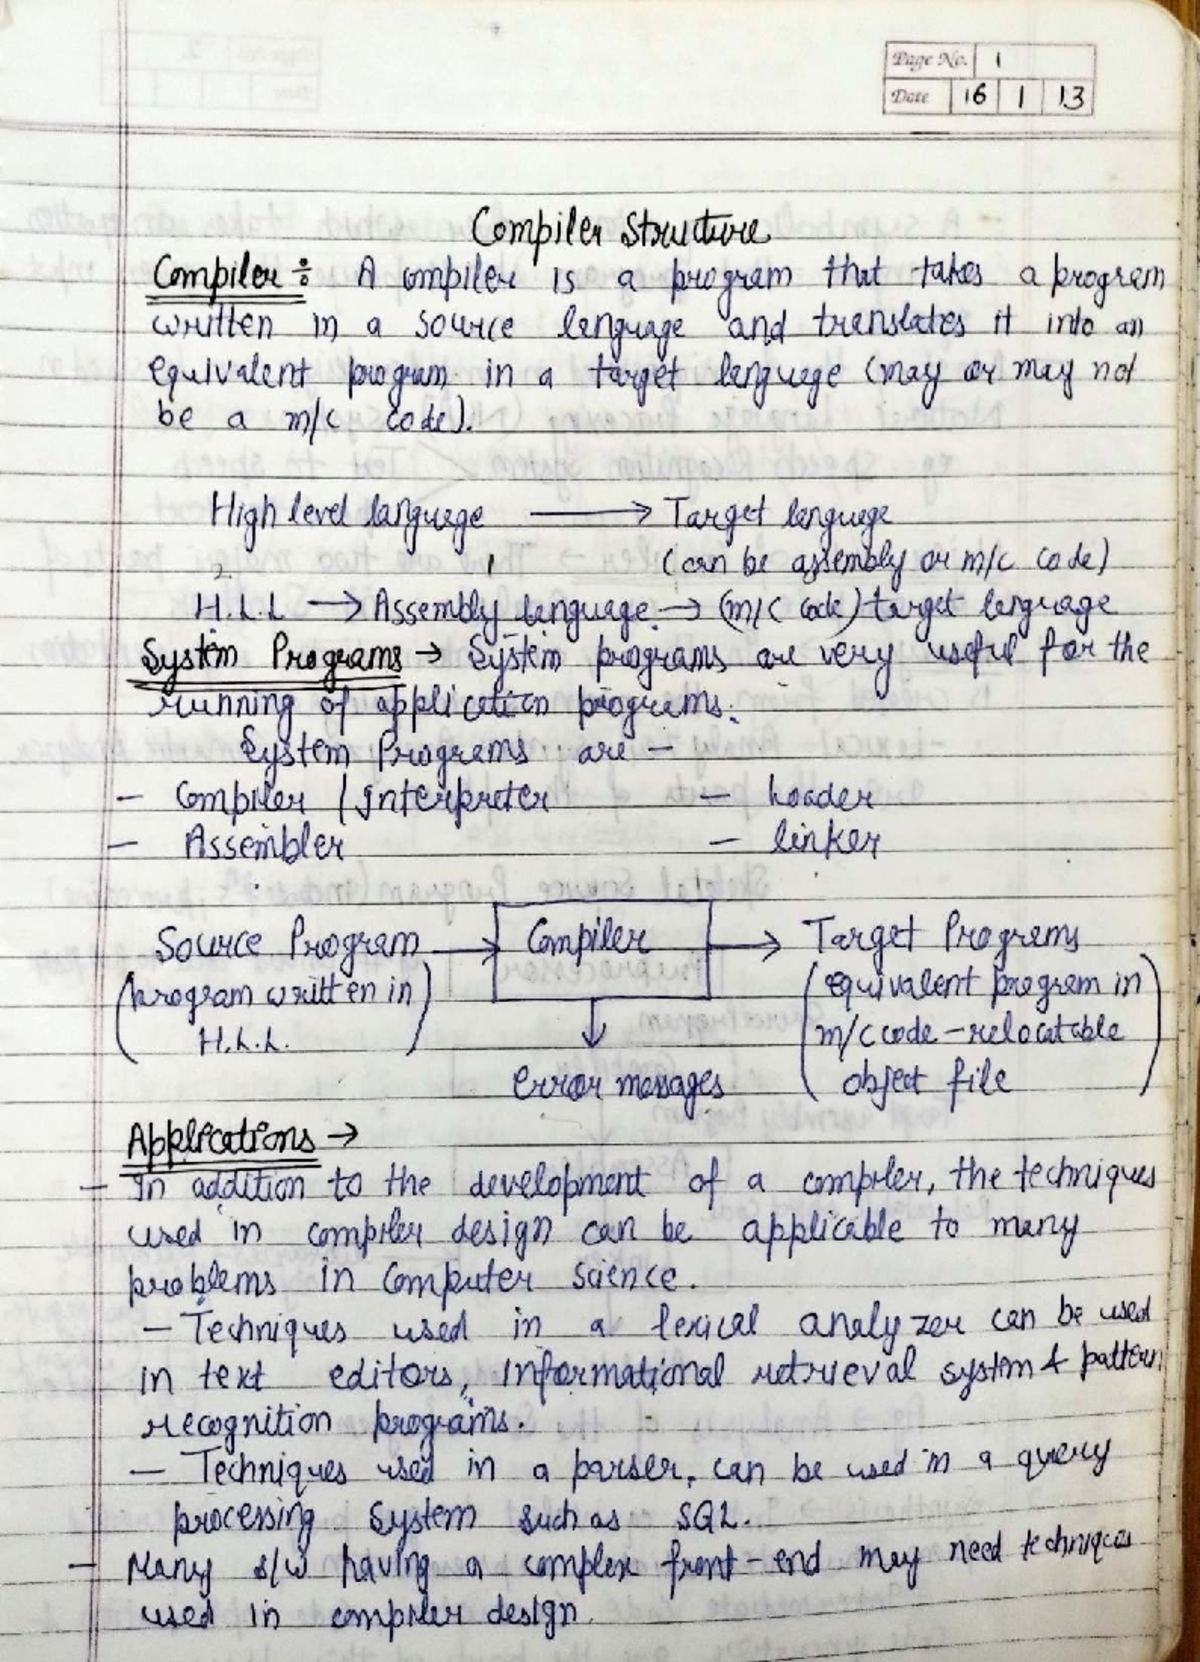 Page No. 1
Date 16 1 13
Compiler Structure
Compiler :- A compiler is a program that takes a program
written in a source language and translates it into an
equivalent program in a target language (may or may not
be a m/c code).
High level language → Target language
(can be assembly or m/c code)
2 1
H.L.L → Assembly language → (m/c code) target language
System Programs → System programs are very useful for the
running of application programs.
System Programs are -
- Compiler / Interpreter - Loader
- Assembler - linker
Source Program → Compiler → Target Programs
(program written in (equivalent program in
H.L.L.) m/c code - relocatable
error messages object file)
Applications →
- In addition to the development of a compiler, the techniques
used in compiler design can be applicable to many
problems in computer science.
- Techniques used in a lexical analyzer can be used
in text editors, informational retrieval system & pattern
recognition programs.
- Techniques used in a parser, can be used in a query
processing system such as SQL.
- Many s/w having a complex front-end may need techniques
used in compiler design.